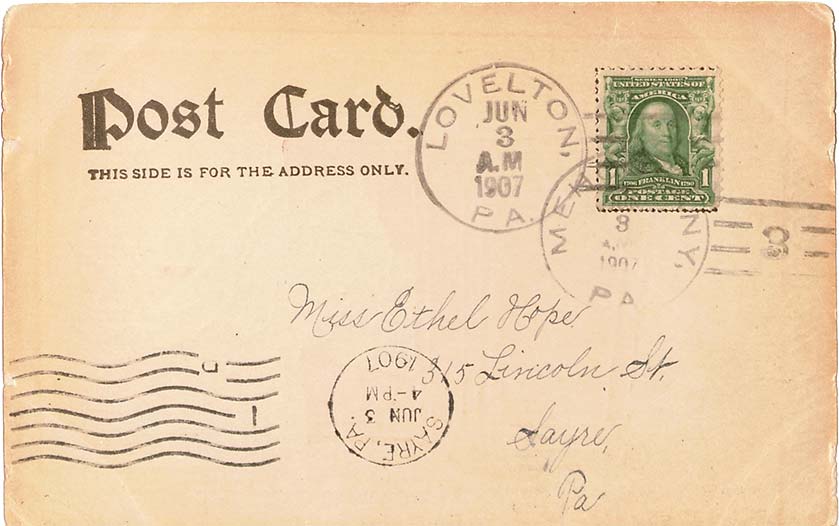 Post Card.
THIS SIDE IS FOR THE ADDRESS ONLY.
LOVELTON, PA.
JUN
3
A.M
1907
SERIES 1902
UNITED STATES OF
AMERICA
1 1
1706 FRANKLIN 1790
POSTAGE
ONE CENT
NY,
3
A.M
1907
PA
8
Miss Ethel Hope
315 Lincoln St.
Sayre,
Pa
SAYRE, PA.
JUN 3
4-PM
1907
D
1